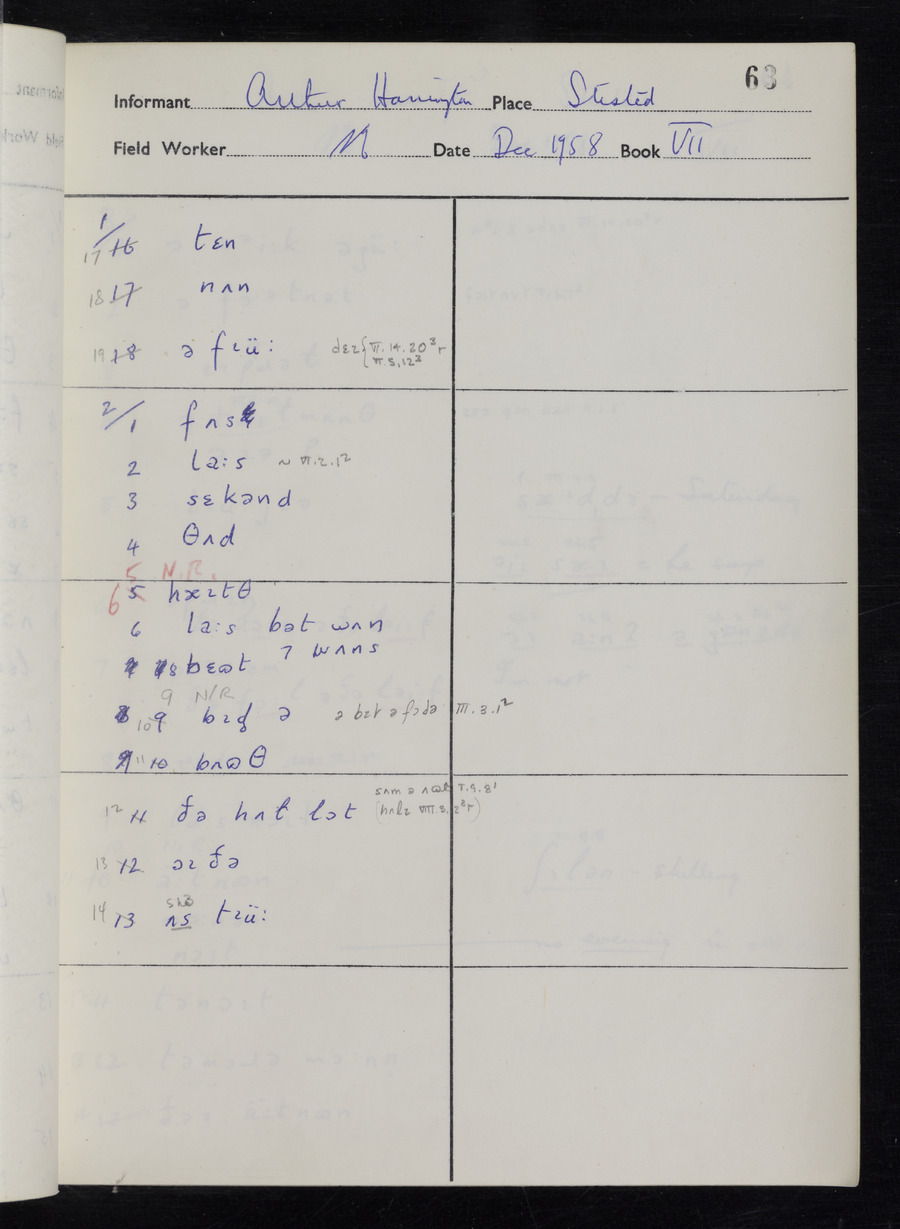 63
Informant Arthur Harrington Place Stisted
Field Worker N Date Dec 1958 Book VII
1/
17 16 tɛn
18 17 nʌn
19 18 ə fɪüː dɛɪ { VI. 14. 20³ r
VI. 5, 12³
2/1 fʌs
2 laːs ~ VI. 2. 1²
3 sɛkənd
4 θʌd
5 N.R.
6 5 hæɪtθ
6 laːs bət wʌn
7 wʌns
8 bɛɷt
9 N/R
10 9 bɪɖ ə ə bɪt əfɔdə III. 3. 1²
11 10 bʌɷθ
sʌm ə ʌɷt V. 9. 8¹
12 11 ðə hʌl lɔt (hʌlɪ VIII. 8. 2² r)
13 12 əɪðə
14 13 ʌs tɪüː